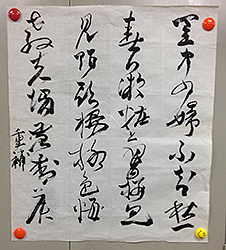 閨中少婦不知愁
春日凝妝上翠樓忽
見陌頭楊柳色悔
教夫婿覓封侯